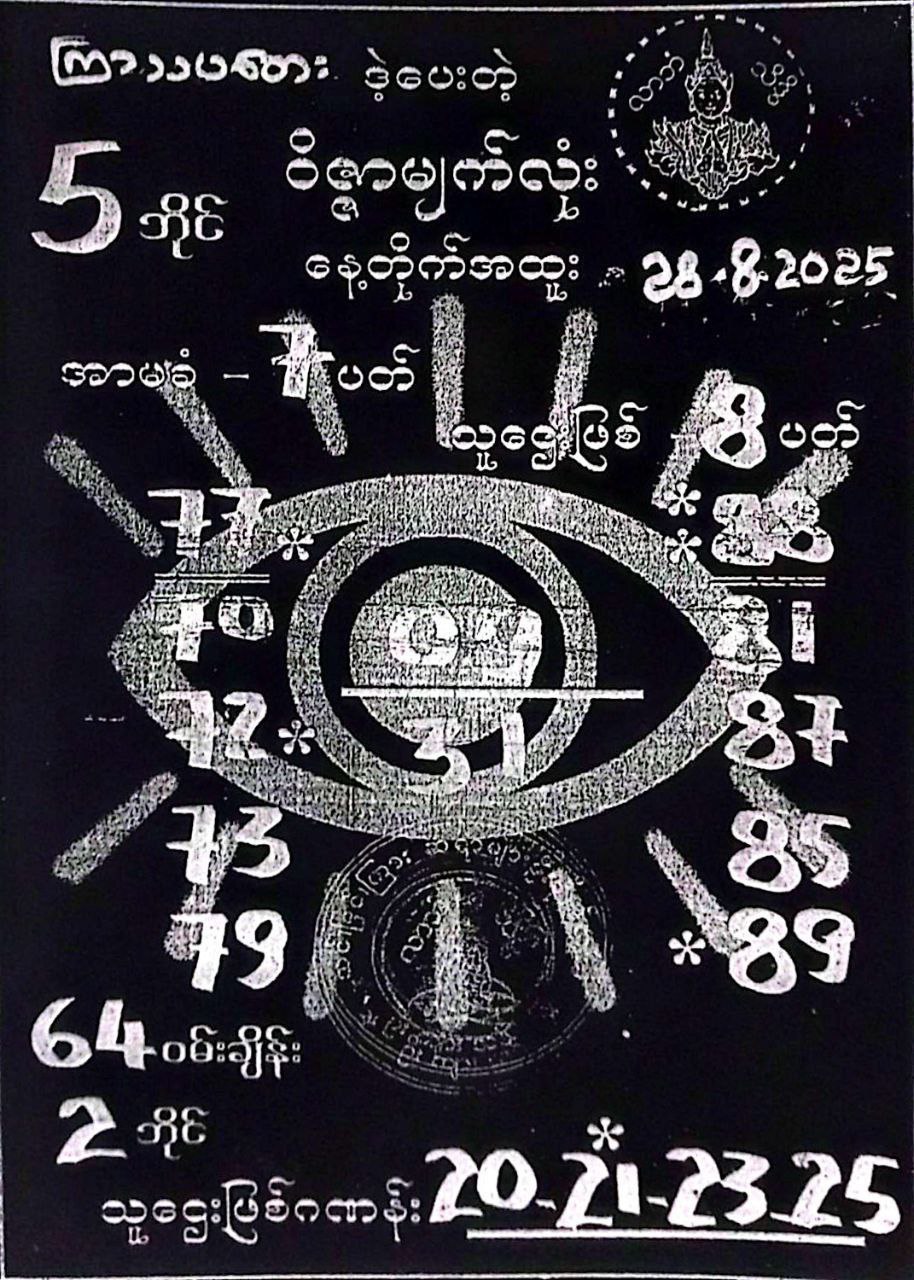 ကြာသပတေး ဒဲ့ပေးတဲ့
5 ဘိုင်
ဝိဇ္ဇာမျက်လုံး
နေ့တိုက်အထူး - 28-8-2025
အာမခံ - 7 ပတ်
သူဌေးဖြစ် - 8 ပတ်
77 * * 88
70 81
72 * 87
73 85
79 * 89
31
64 ဝမ်းချိန်း
2 ဘိုင်
သူဌေးဖြစ်ဂဏန်း 20-21*-23-25